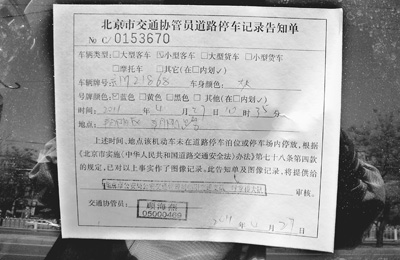 北京市交通协管员道路停车记录告知单
No C/0153670
车辆类型:□大型客车 ☑小型客车 □大型货车 □小型货车
□摩托车 □其它(在□内划√)
车辆牌号:京 车身颜色:
号牌颜色:☑蓝色 □黄色 □黑色 □其他(在□内划√)
时间: 2011 年 4 月 27 日 10 时 35 分
地点:
上述时间、地点该机动车未在道路停车泊位或停车场内停放,根据
《北京市实施〈中华人民共和国道路交通安全法〉办法》第七十八条第四款
的规定,已对以上事实作了图像记录。此告知单及图像记录,将提供给
审核。
交通协管员:
顾海燕
05000469
2011 年 4 月 27 日